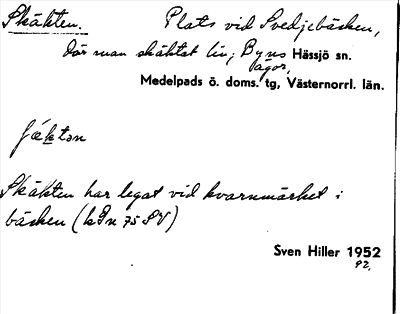 Skäkten. Plats vid Svedjebäcken,
där man skäktat lin; Byns Hässjö sn.
ägor,
Medelpads ö. doms. tg, Västernorrl. län.
Skäkten har legat vid kvarnmärket i
bäcken (
Sven Hiller 1952